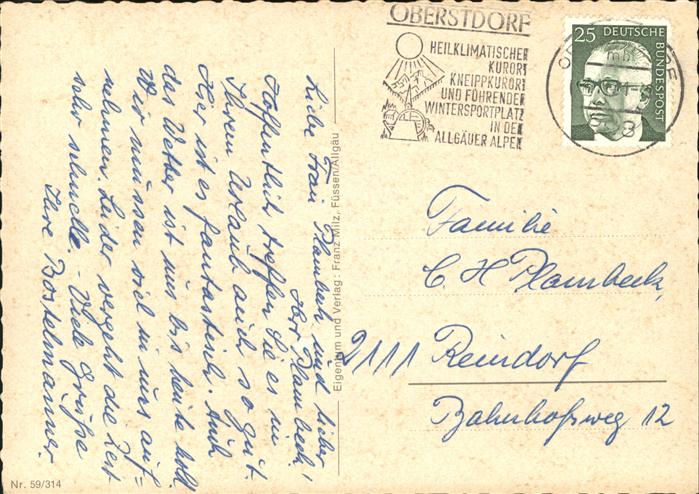 Liebe Frau Plambeck und lieber
Herr Plambeck!
Hoffentlich treffen Sie es in
Ihrem Urlaub auch so gut.
Hier ist es fantastisch. Auch
das Wetter ist uns bis heute hold.
Wir müssen viel in uns auf=
nehmen. Leider vergeht die Zeit
sehr schnelle. - Viele Grüße
Ihre Bostelmänner.
Eigentum und Verlag: Franz Milz, Füssen/Allgäu
Nr. 59/314
OBERSTDORF
HEILKLIMATISCHER
KURORT
KNEIPPKURORT
UND FÜHRENDER
WINTERSPORTPLATZ
IN DEN
ALLGÄUER ALPEN
25 DEUTSCHE
BUNDESPOST
Familie
C H Plambeck,
2111 Reindorf
Bahnhofsweg 12